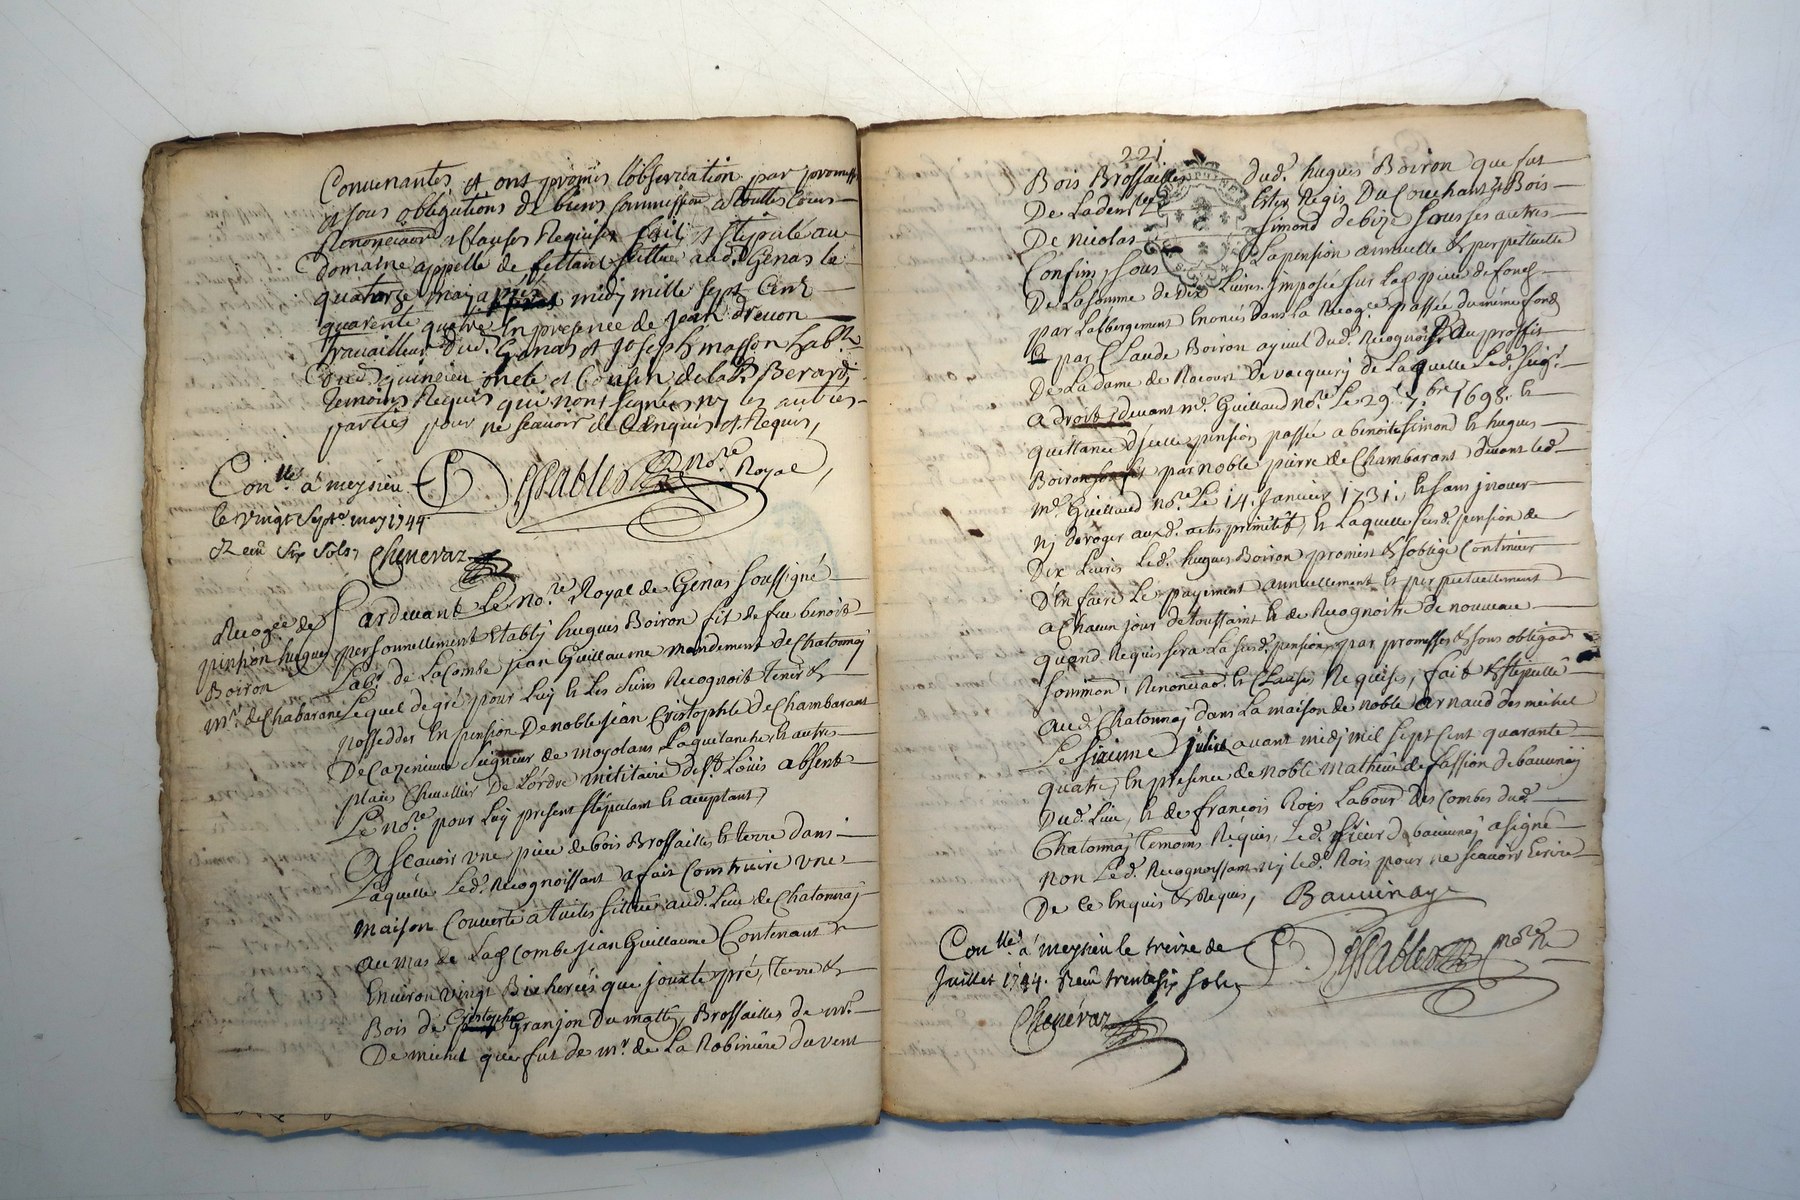 Convenantes, et ont promis l'observation par promesse
et sous obligations de biens soumission a touttes Cours
Renonciaon et Clauses Requises fait et stipulé au
domaine appellé de situé aud. Genas le
quatorze may apres midy mille sept Cent
quarente quatre En presence de Jean drevon
travailleur dud. Genas et Joseph masson hab.t
oncle et Cousin de la Berard
temoins Requis qui n'ont signés ny les autres
parties pour ne scavoir de Cenquis et Requis,
Con.llé à meysieu
le vingt sept.e may 1744
Receu six sols, Chenevaz
no.re Royal
Recog.ce de
pension hugues
Boiron
m.r de Chabarane
Pardevant Le no.re Royal de Genas soussigné
personnellement Etably hugues Boiron fit de feu benoit
Lab.r de La Combe jean Guillaume mandement de Chatonnay
Lequel de gré pour Luy & Les siens Recognoit tenir &
posseder En pension De noble jean Cristophle de Chambarant
De Cazenieuve Seigneur de moyolans Laquilanche & autres
places Chevallier De L'ordre militaire de st. Loüis absent
Le no.re pour Luy present stipulant & acceptant,
A Scavoir une piece de bois Brossailles & terre dans
Laquelle Led. Recognoissant a fait Construire une
maison Couverte à tuiles sittuée aud. Lieu de Chatonnay
au mas de Lad. Combe jean Guillaume Contenant
Environ vingt Bicherées que jouxte pré, terre &
Bois de Cristophe Granjon Du matty, Brossailles de m.r
De michel que fut de m.r de La Robiniere du vent
221.
Bois Brossailles dud. hugues Boiron que fut
De Laden Ester Regis Du Couchant & Bois
De Nicolas Simond de bize sous ses autres
Confins, sous La pension annuelle & perpetuelle
De La somme de dix Livres imposée sur Lad. piece de fonds
par L'albergement Enoncés dans La Recog.ce passée du même fond
par Claude Boiron ayeul dud. Recognoiss.t au proffit
De La dame de Rocourt De vacquery de Laquelle Led. seig.r
a droit, devant m.e Guilland no.re Le 29.e 7.bre 1698. &
quittance d'jcelle pension passée a benoit Simond & hugues
Boiron par noble pierre de Chambarant devant led.
m.e Guilland no.re Le 14. Janvier 1731., & sans jnover
ny deroger aux d. actes primitifs, & Laquelle susd. pension de
Dix Livres Led. hugues Boiron promet & s'oblige Continuer
D'En faire Le payement annuellement & perpetuellement
a Chacun jour de toussaint & de Recognoitre de nouveau
quand Requis sera La susd. pension, par promesses & sous obligaõ
soummon, Renonciaõ. & Clauses Requises, fait & stipullé
aud. Chatonnay dans La maison de noble arnaud des michel
Le sixieme juliet avant midy mil sept Cent quarante
quatre, En presence de noble mathieu de Lassion de bauvinay
Dud. Lieu, & de françois Rois Labour.r des Combes dud.
Chatonnay temoins Requis, Led. sieur de bauvinay a signé
non Led. Recognoissant ny led. Rois pour ne scavoir Ecrire
De ce Enquis & Requis, Bauvinay
Con.llé à meysieu le treize de
Juillet 1744. Receu trente six sols,
no.re R.
Chenévaz